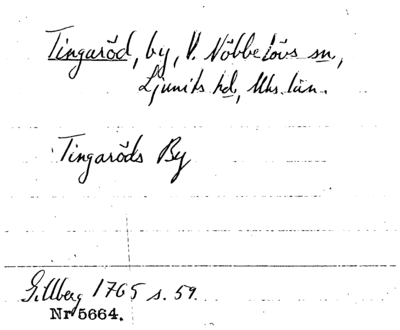 Tingaröd, by, V. Nöbbelövs sn,
Ljunits hd, Mhs. län.
Tingaröds By
Gillberg 1765 s. 59.
Nr 5664.